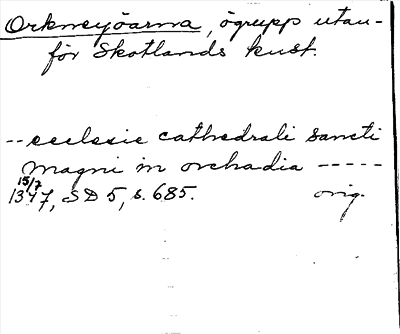 Orkneyöarna, ögrupp utan-
för Skotlands kust.
--ecclesie cathedrali sancti
magni in orchadia -----
15/7
1347, SD 5, s. 685. orig.